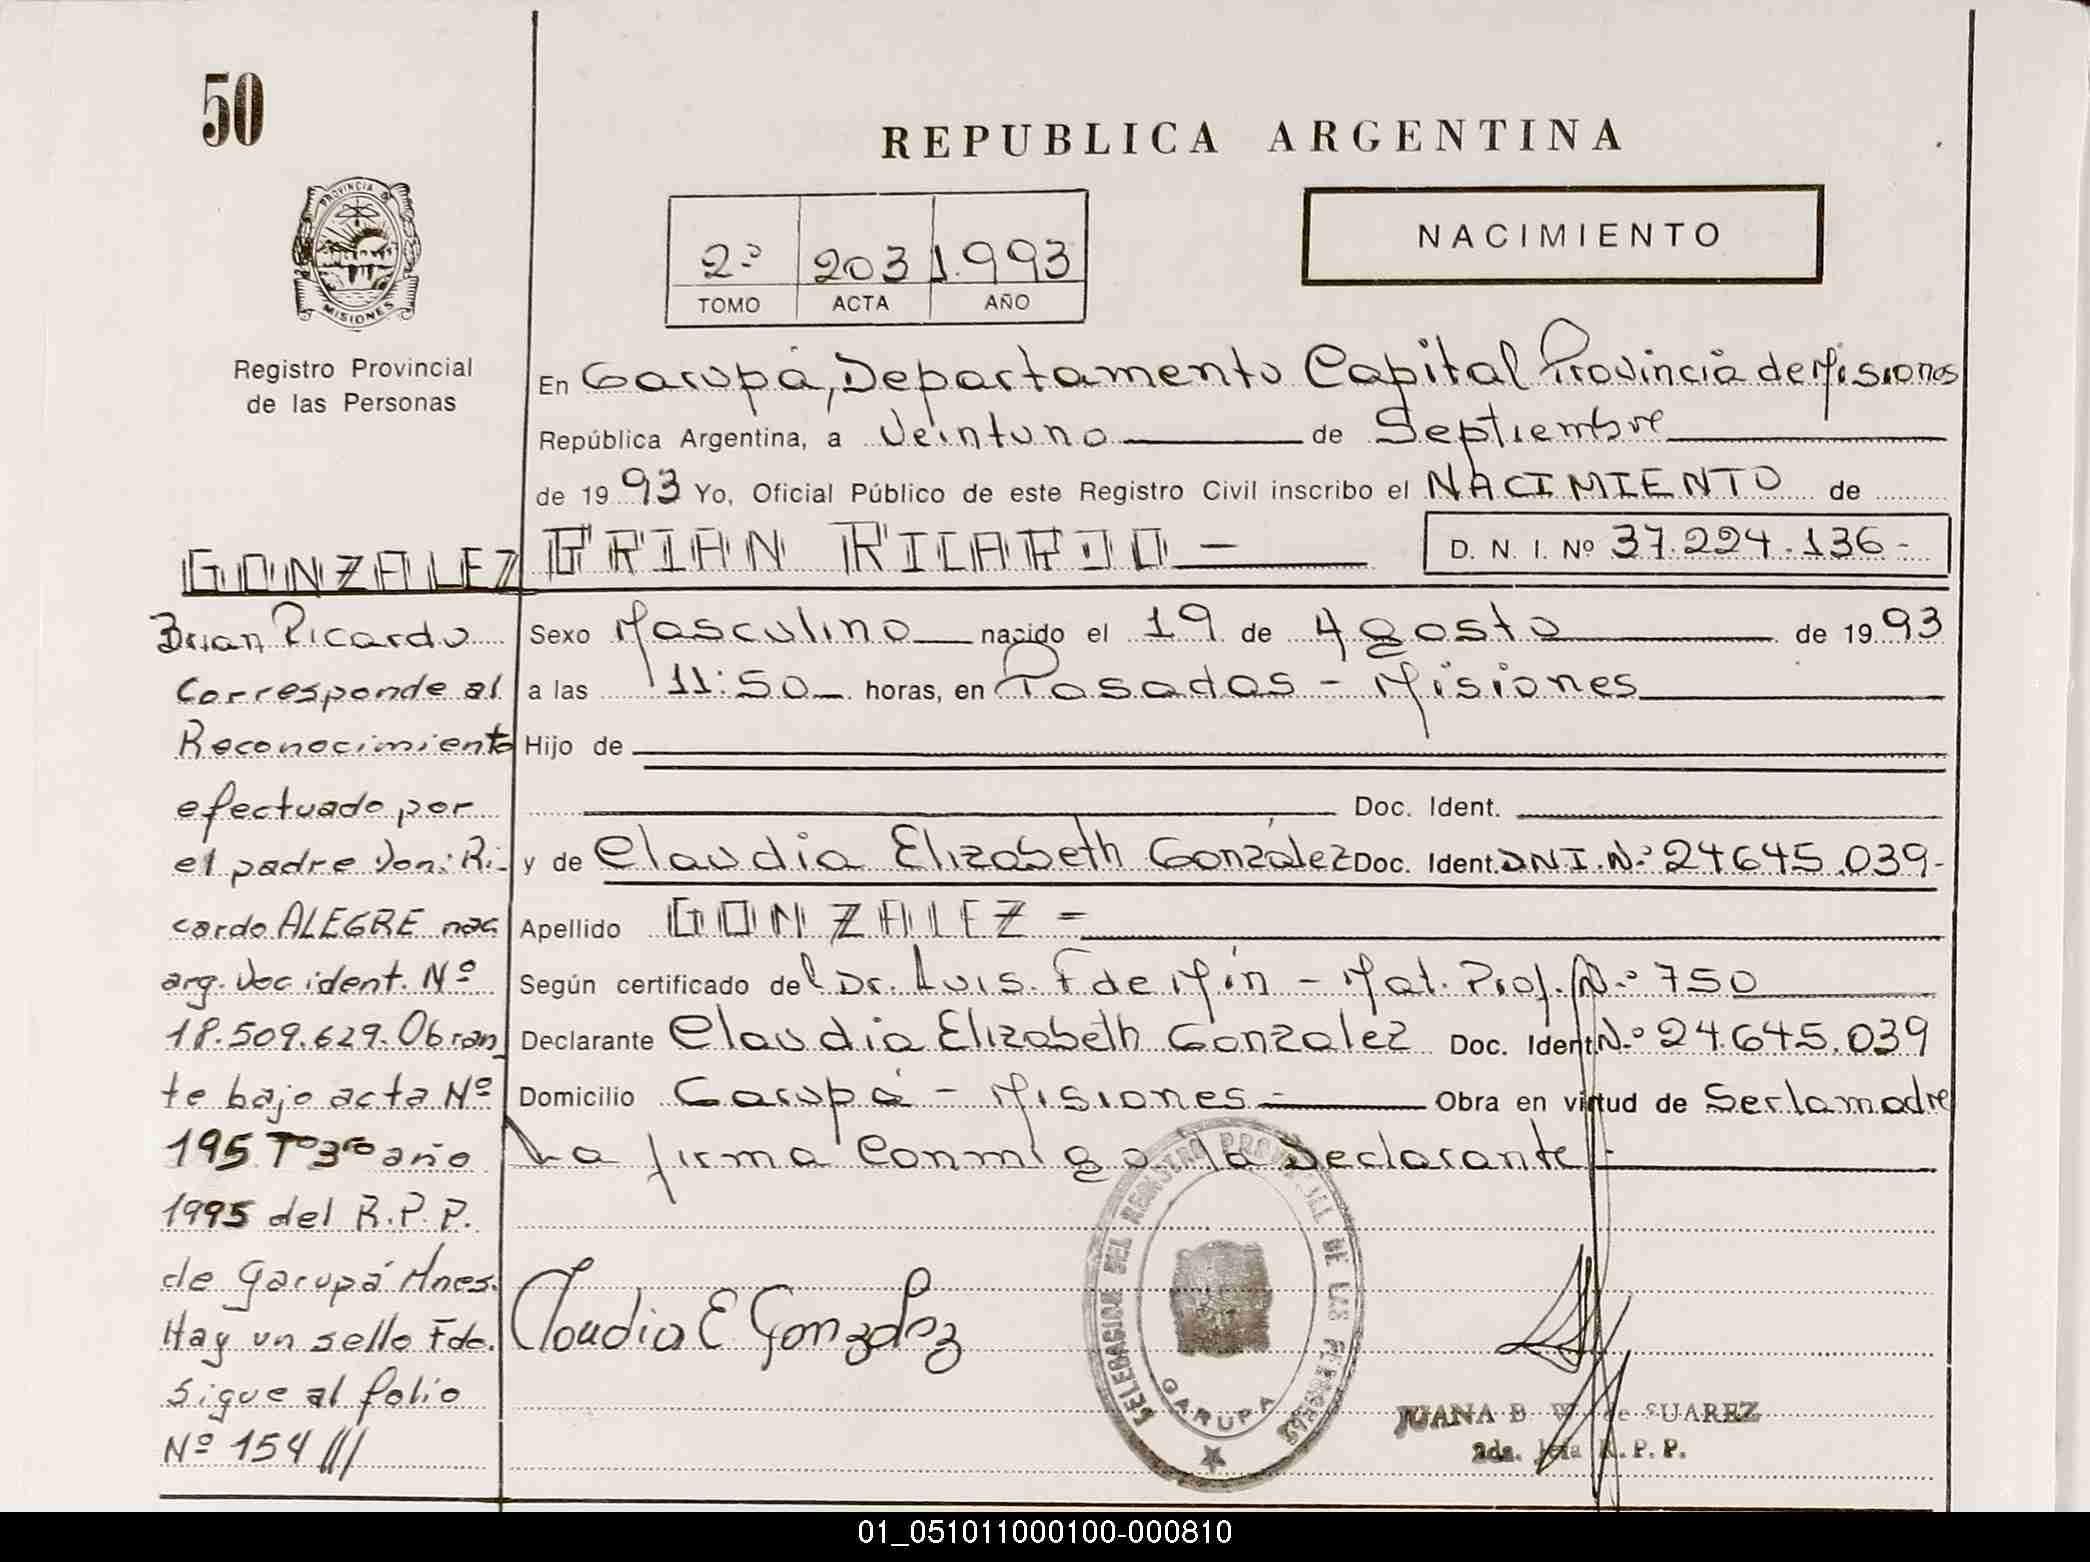 50
REPUBLICA ARGENTINA
PROVINCIA DE
MISIONES
Registro Provincial
de las Personas
2º 203 1.993
TOMO ACTA AÑO
NACIMIENTO
En Garupá, Departamento Capital Provincia de Misiones
República Argentina, a Veintuno de Septiembre
de 1993 Yo, Oficial Público de este Registro Civil inscribo el NACIMIENTO de
BRIAN RICARDO — D. N. I. Nº 37.224.136-
Sexo Masculino nacido el 19 de Agosto de 1993
a las 11:50 horas, en Posadas - Misiones
Hijo de
Doc. Ident.
y de Claudia Elizabeth González Doc. Ident. DNI.Nº 24645.039-
Apellido GONZALEZ =
Según certificado del Dr. Luis. F de - Mat. Prof. N.º 750
Declarante Claudia Elizabeth Gonzalez Doc. Ident N.º 24.645.039
Domicilio Garupá - Misiones - Obra en virtud de Ser la madre
La firma Conmigo la Declarante
Claudia E Gonzalez
DELEGACION DEL REGISTRO PROVINCIAL DE LAS PERSONAS
GARUPA
JUANA B. W. de SUAREZ
2da. Jefa R. P. P.
GONZALEZ
Brian Ricardo
Corresponde al
Reconocimiento
efectuado por
el padre Don: Ri-
cardo ALEGRE nac
arg. Doc ident. Nº
18.509.629. Obran
te bajo acta Nº
195 Tº 3ro año
1995 del R.P.P.
de Garupá Mnes.
Hay un sello Fdo.
Sigue al folio
Nº 154 ///
01_051011000100-000810